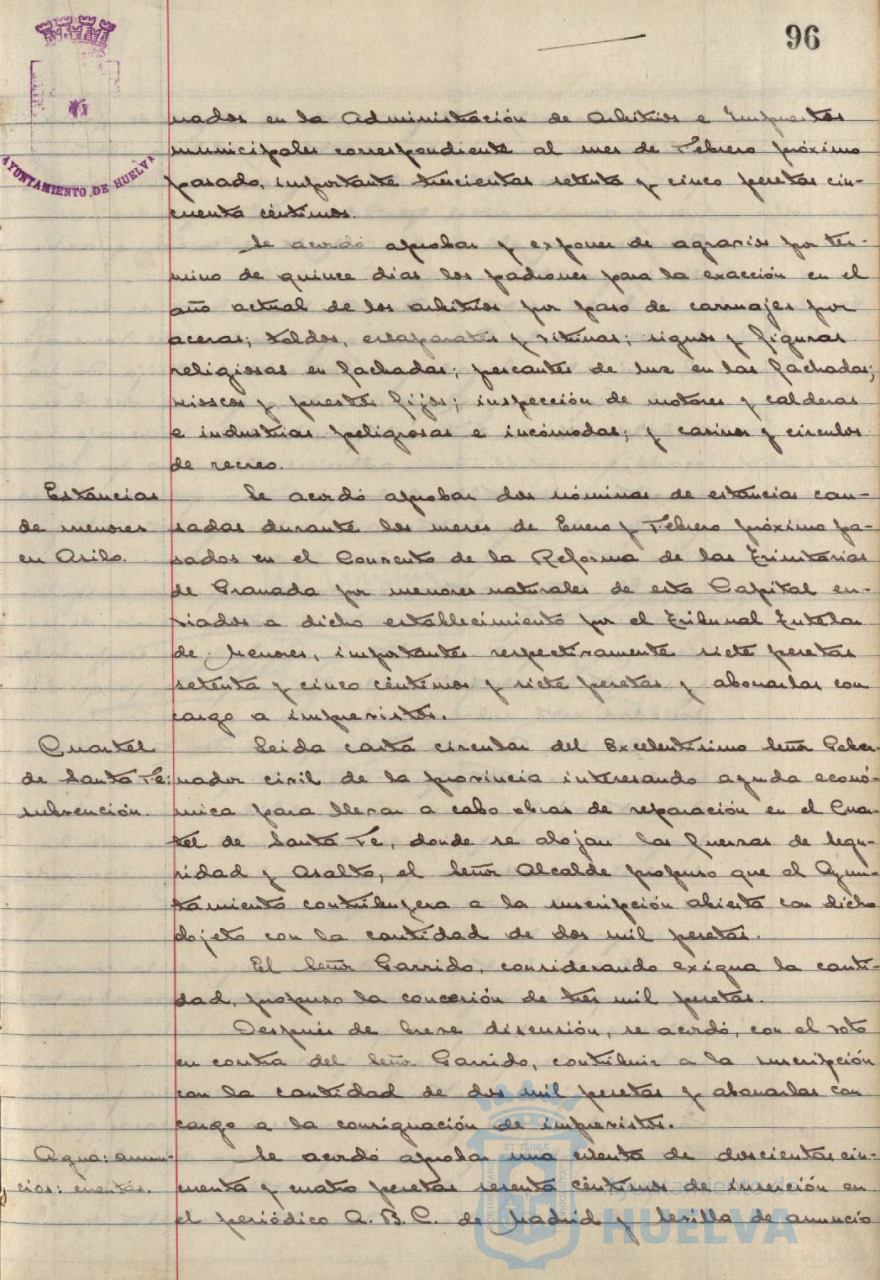 96
AYUNTAMIENTO DE HUELVA
nados en la Administración de Arbitrios e Impuestos
municipales correspondiente al mes de Febrero próximo
pasado, importante trescientas setenta y cinco pesetas cin-
cuenta céntimos.
Se acordó aprobar y exponer de agravios por tér-
mino de quince días los padrones para la exacción en el
año actual de los arbitrios por paso de carruajes por
aceras; toldos, escaparates y vitrinas; signos y figuras
religiosas en fachadas; pescantes de luz en las fachadas;
kioscos y puestos fijos; inspección de motores y calderas
e industrias peligrosas e incómodas; y casinos y círculos
de recreo.
Estancias
de menores
en Asilo.
Se acordó aprobar dos nóminas de estancias cau-
sadas durante los meses de Enero y Febrero próximo pa-
sados en el Convento de la Reforma de las Trinitarias
de Granada por menores naturales de esta Capital en-
viados a dicho establecimiento por el Tribunal Tutelar
de Menores, importantes respectivamente siete pesetas
setenta y cinco céntimos y siete pesetas y abonarlas con
cargo a imprevistos.
Cuartel
de Santa Fe:
subvención.
Leida carta circular del Excelentísimo Señor Gober-
nador civil de la provincia interesando ayuda econó-
mica para llevar a cabo obras de reparación en el Cuar-
tel de Santa Fe, donde se alojan las fuerzas de Segu-
ridad y Asalto, el Señor Alcalde propuso que el Ayun-
tamiento contribuyera a la suscripción abierta con dicho
objeto con la cantidad de dos mil pesetas.
El Señor Garrido, considerando exigua la canti-
dad, propuso la concesión de tres mil pesetas.
Después de breve discusión, se acordó, con el voto
en contra del Señor Garrido, contribuir a la suscripción
con la cantidad de dos mil pesetas y abonarlas con
cargo a la consignación de imprevistos.
Agua: anun-
cios: cuentas.
Se acordó aprobar una cuenta de doscientas cin-
cuenta y cuatro pesetas sesenta céntimos de inserción en
el periódico A.B.C. de Madrid y Sevilla de anuncio
HUELVA